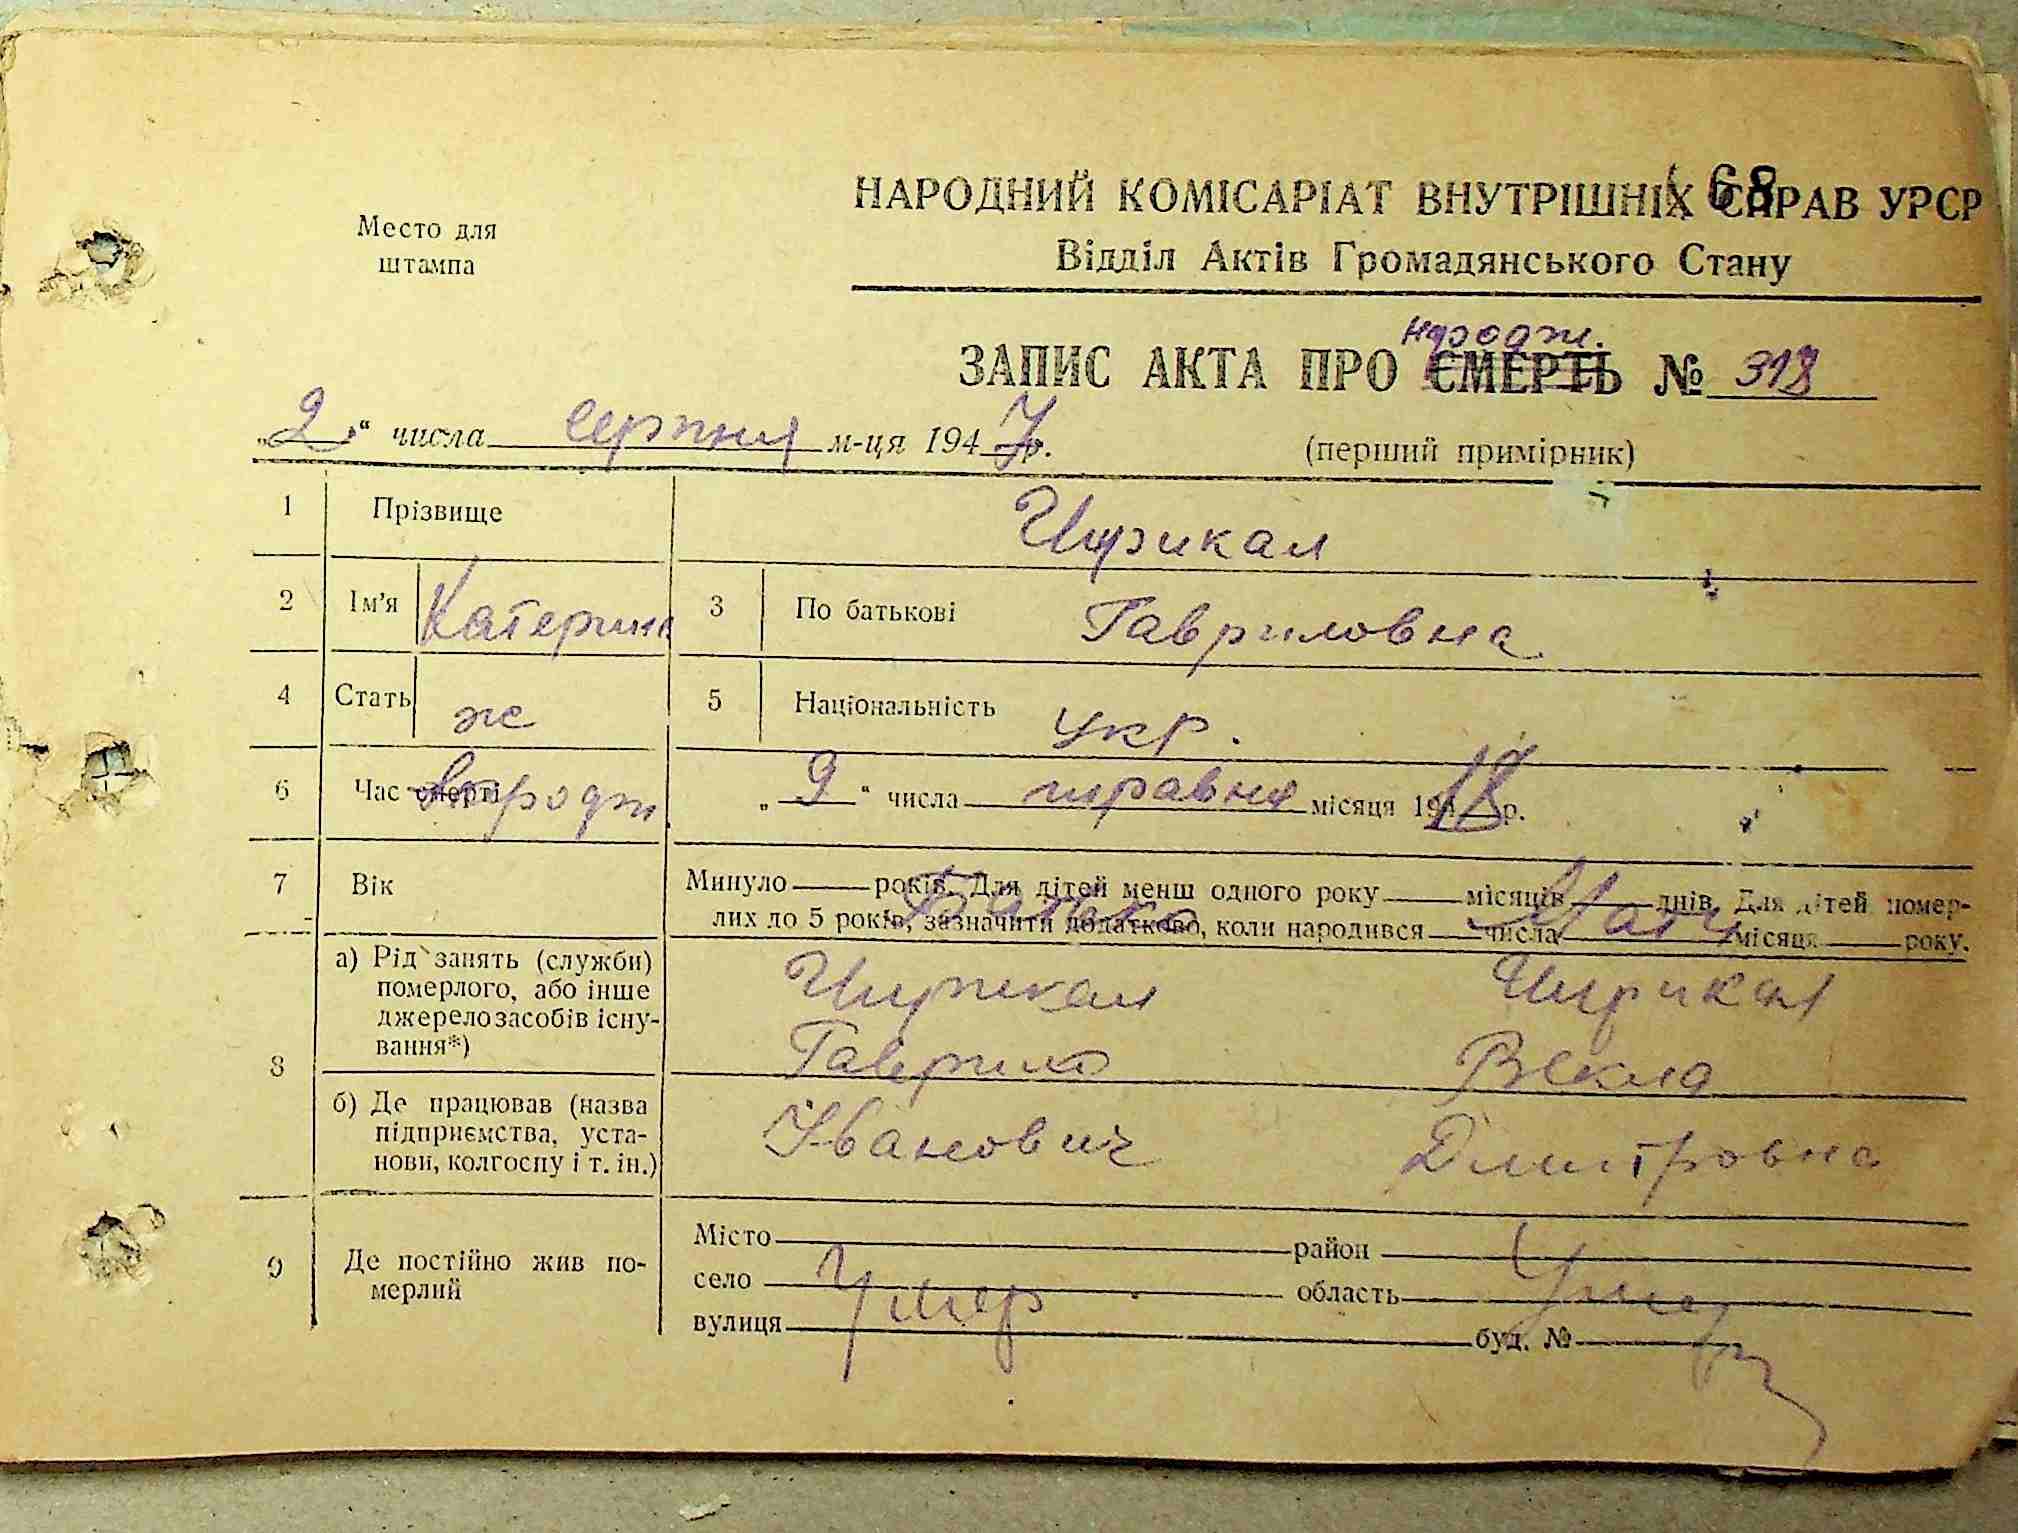 168
НАРОДНИЙ КОМІСАРІАТ ВНУТРІШНІХ СПРАВ УРСР
Место для штампа
Відділ Актів Громадянського Стану
народж.
ЗАПИС АКТА ПРО СМЕРТЬ № 318
„2“ числа серпня м-ця 1947 р.
(перший примірник)
1 Прізвище Чирикал
2 Ім'я Катерина 3 По батькові Гавриловна
4 Стать ж 5 Національність укр.
6 Час смерті народж „9“ числа травня місяця 1918 р.
7 Вік Минуло років. Для дітей менш одного року місяців днів. Для дітей померлих до 5 років, зазначити додатково, коли народився числа місяця року.
Батько Мати
8 а) Рід занять (служби) померлого, або інше джерело засобів існування*)
Чирикал Чирикал
Гаврило Векла
б) Де працював (назва підприємства, установи, колгоспу і т. ін.)
Іванович Дмитровна
9 Де постійно жив померлий
Місто район
село область
вулиця буд. №
Умер